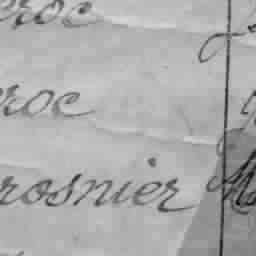 eroc
roc
rosnier